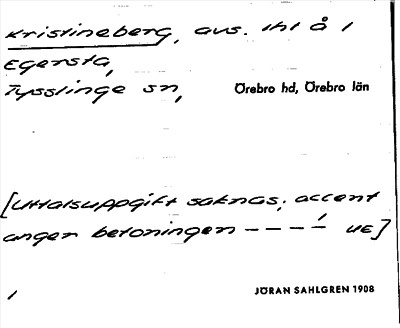 Kristineberg, avs. ihl å 1
Egersta,
Tysslinge sn, Örebro hd, Örebro län
[Uttalsuppgift saknas; accent
anger betoningen – – – –́ UE]
1
JÖRAN SAHLGREN 1908